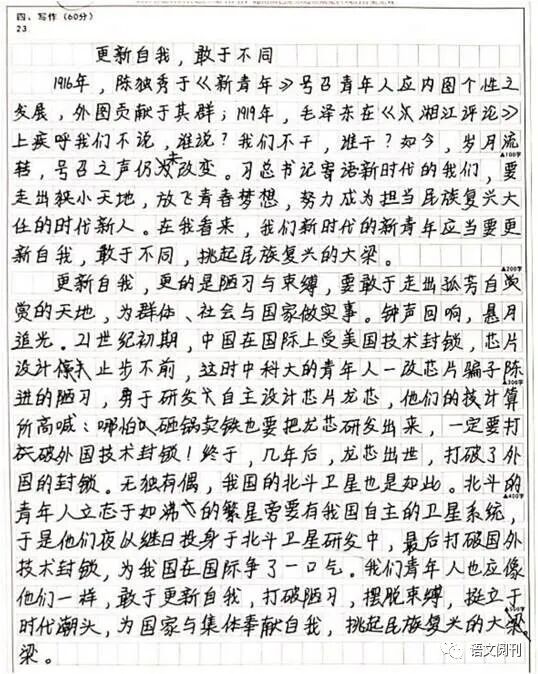 四、写作（60分）
23
更新自我，敢于不同
1916年，陈独秀于《新青年》号召青年人应内图个性之
发展，外图贡献于其群；1919年，毛泽东在《湘江评论》
上疾呼我们不说，谁说？我们不干，谁干？如今，岁月流
转，号召之声仍未改变。习总书记寄语新时代的我们，要
▲100字
走出狭小天地，放飞青春梦想，努力成为担当民族复兴大
任的时代新人。在我看来，我们新时代的新青年应当要更
新自我，敢于不同，挑起民族复兴的大梁。
▲200字
更新自我，更的是陋习与束缚，要敢于走出孤芳自赏
的天地，为群体、社会与国家做实事。钟声回响，悬月
追光。21世纪初期，中国在国际上受美国技术封锁，芯片
设计止步不前，这时中科大的青年人一改芯片骗子陈
▲300字
进的陋习，勇于研发自主设计芯片龙芯，他们的技计算
所高喊：哪怕砸锅卖铁也要把龙芯研发出来，一定要打
破外国技术封锁！终于，几年后，龙芯出世，打破了外
国的封锁。无独有偶，我国的北斗卫星也是如此。北斗的
▲400字
青年人立志于如沸的繁星旁要有我国自主的卫星系统，
于是他们夜以继日投身于北斗卫星研发中，最后打破国外
技术封锁，为我国在国际争了一口气。我们青年人也应像
他们一样，敢于更新自我，打破陋习，摆脱束缚，挺立于
时代潮头，为国家与集体奉献自我，挑起民族复兴的大梁
梁。
语文阅刊